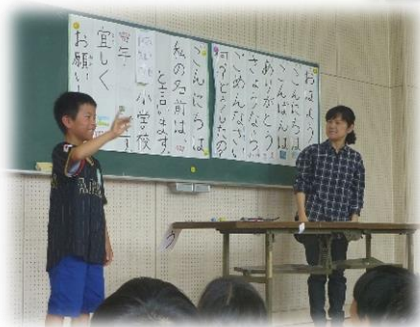 おはよう
こんにちは
こんばんは
ありがとう
さようなら
ごめんなさい
何 どうしたの
こんにちは
私の名前は、
と言います。
小学校
年
宜しく
お願い